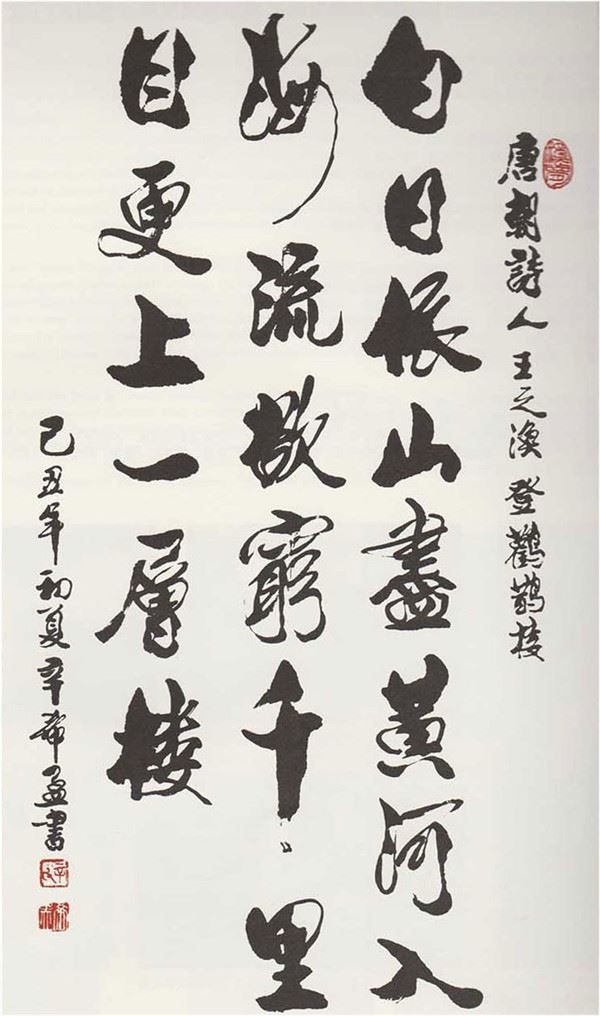 唐朝詩人王之渙登鸛鵲樓
白日依山盡黃河入
海流欲窮千里
目更上一層樓
己丑年初夏辛希孟書